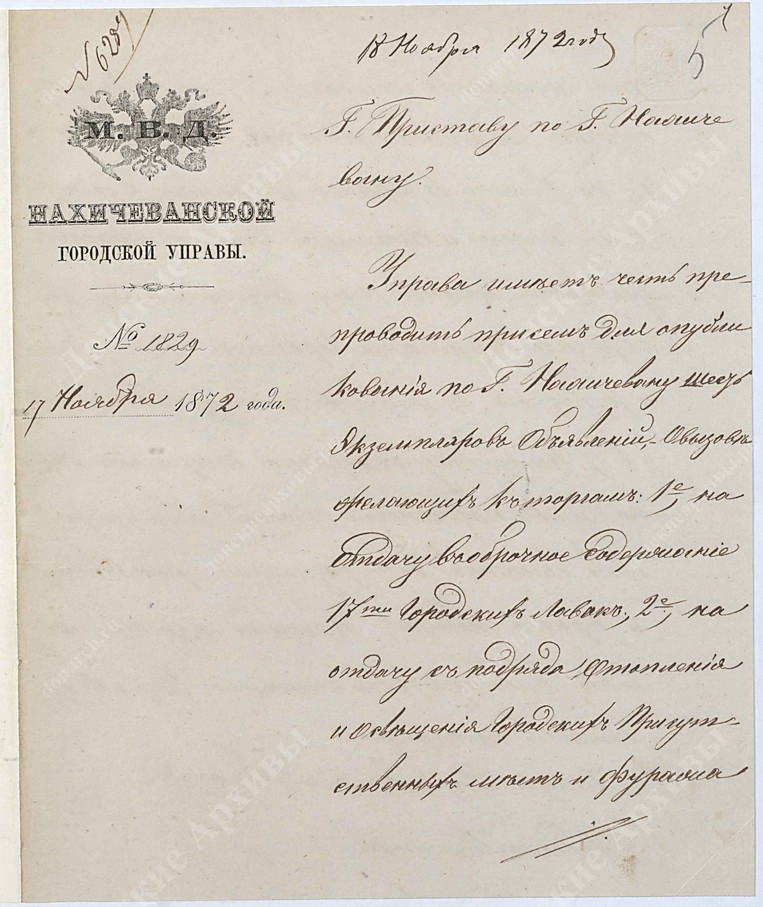 № 6289
М. В. Д.
НАХИЧЕВАНСКОЙ
ГОРОДСКОЙ УПРАВЫ.
№ 1829
17 Ноября 1872 года.
18 Ноября 1872 году
5
Г. Приставу по Г. Нахиче
вану.
Управа имѣетъ честь пре-
проводить присемъ для опубли
кованія по Г. Нахичевану шесть
Экземпляровъ Объявленій, О вызовѣ
желающихъ къ торгамъ: 1е, на
отдачу въ оброчное содержаніе
17ти Городскихъ Лавакъ, 2е, на
отдачу съ подряда Отопленія
и Освѣщенія Городскихъ Присут-
ственныхъ мѣстъ и фуража